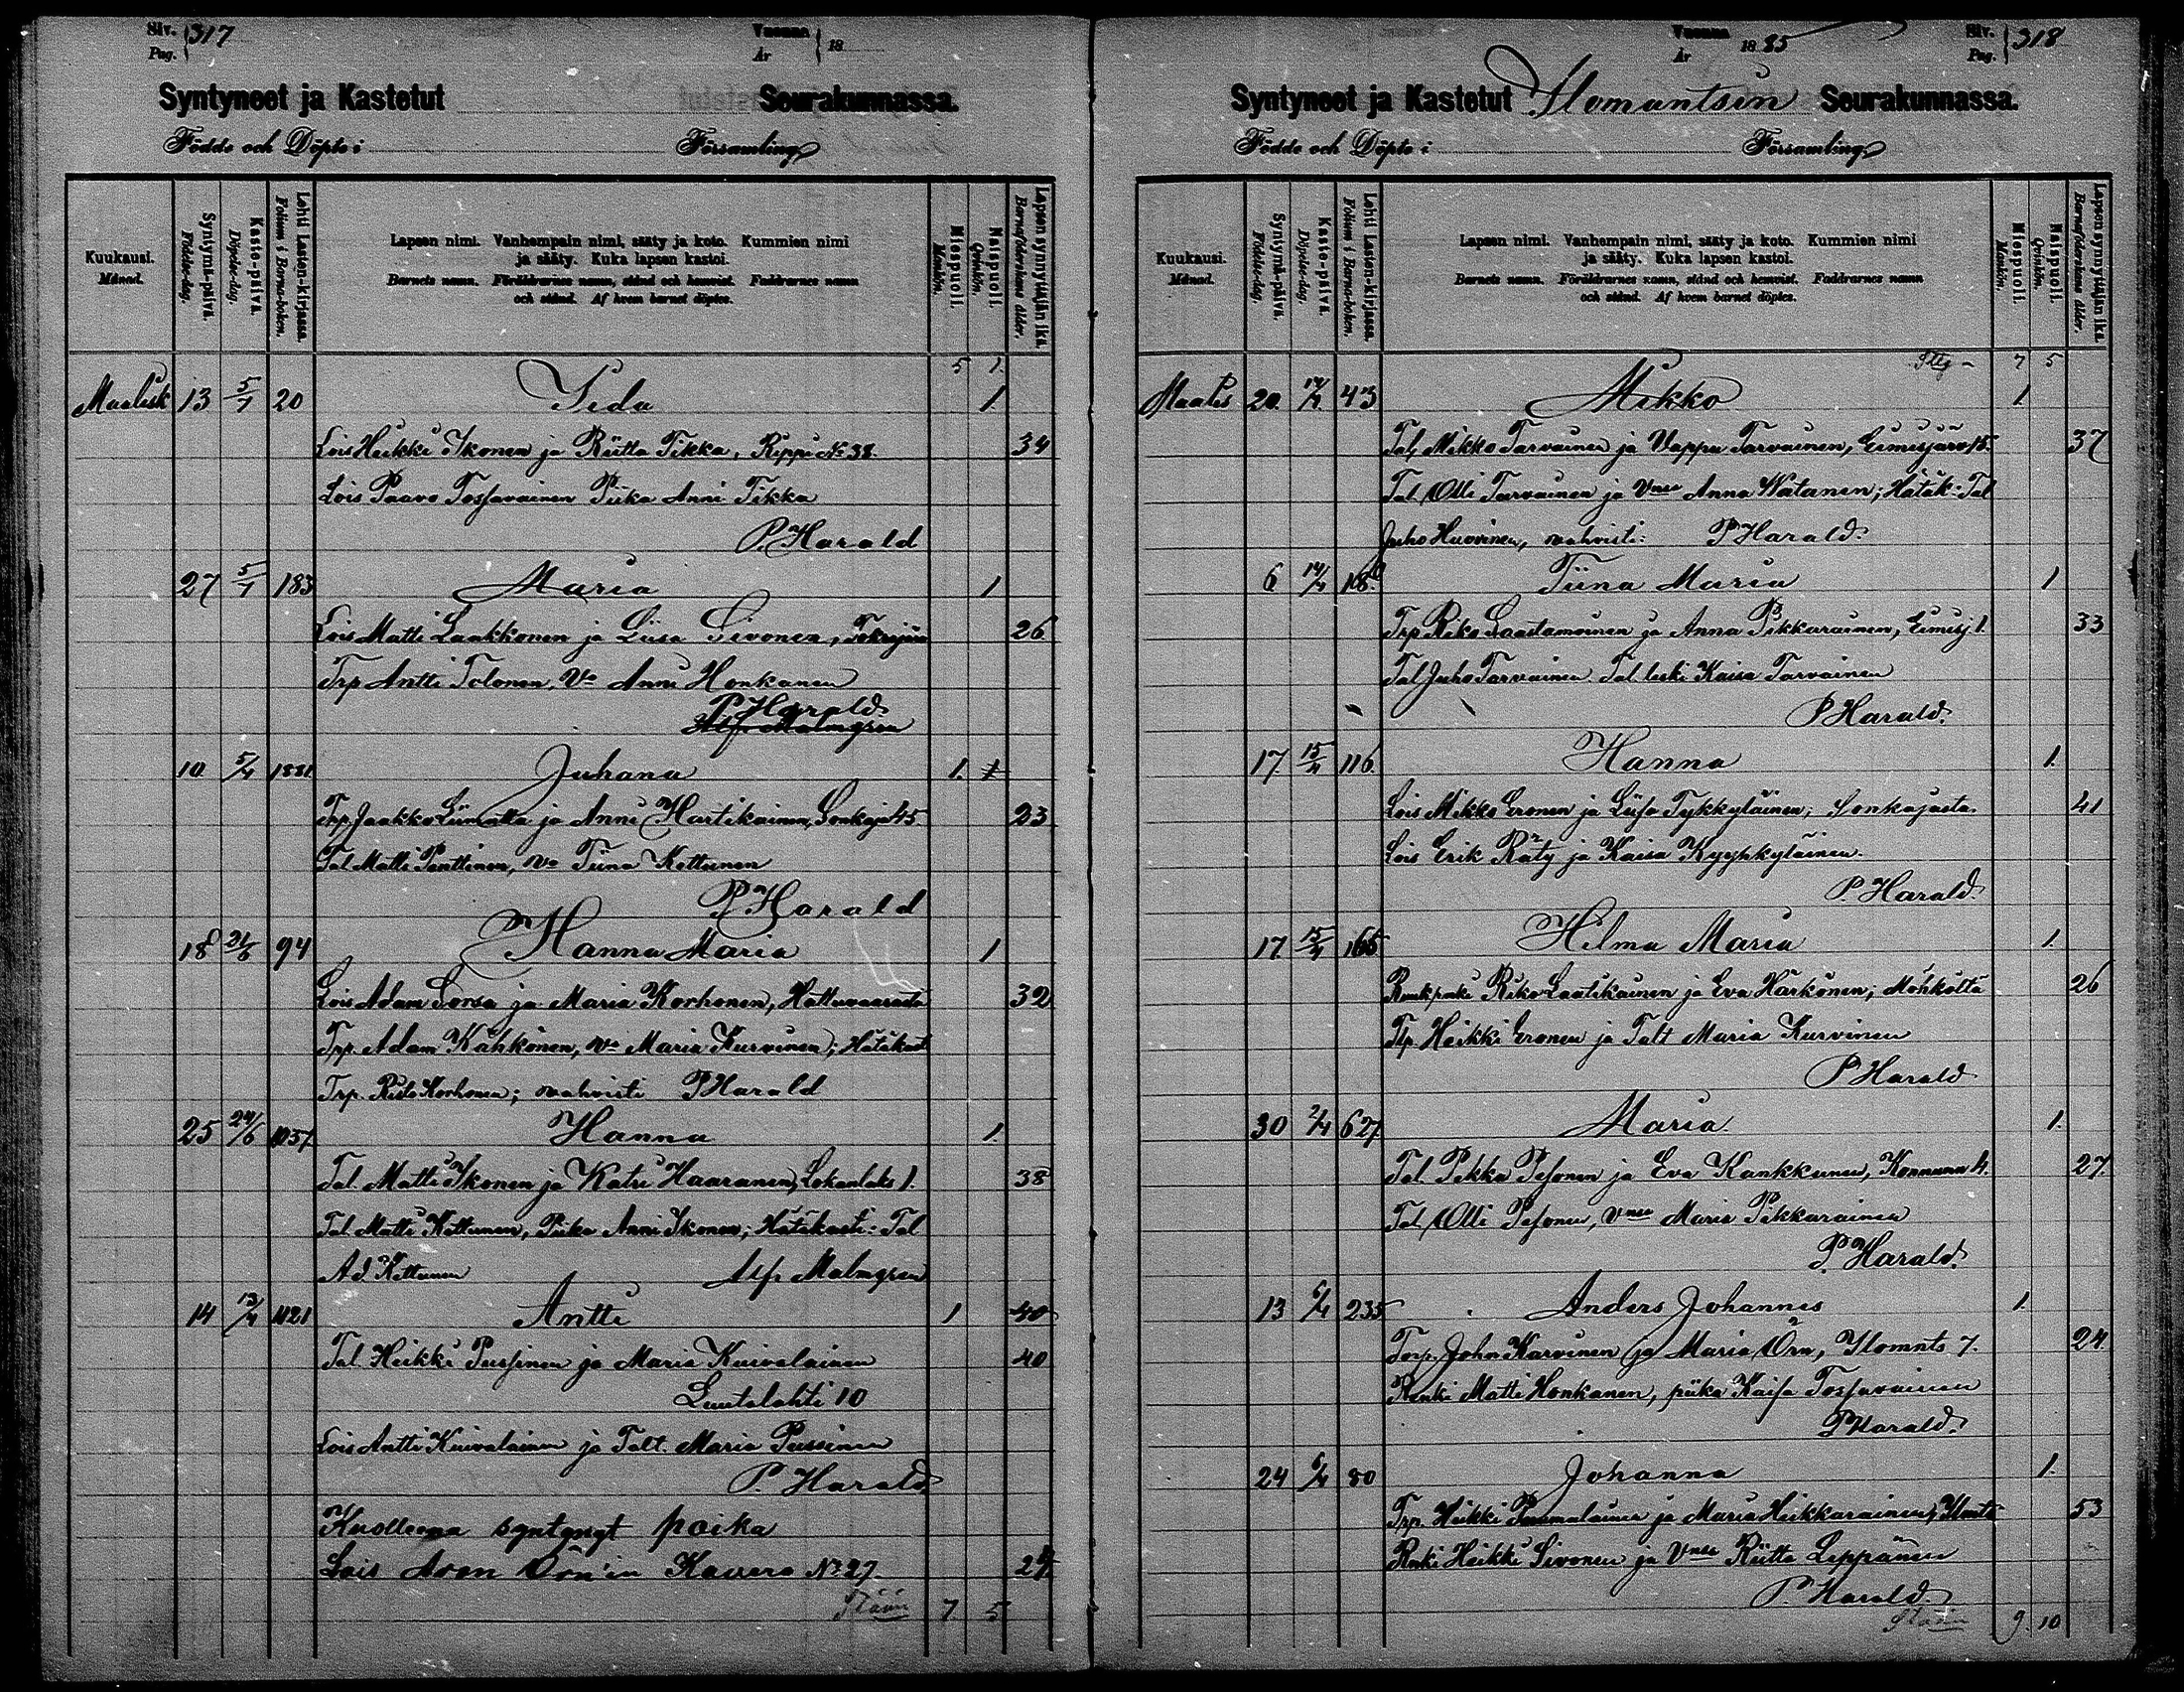 Siv. Pag. 317
Vuonna År 18
Syntyneet ja Kastetut Seurakunnassa.
Födde och Döpte i Församling
Kuukausi. Månad.
Syntymä-päivä. Födelse-dag.
Kaste-päivä. Döpelse-dag.
Lehti Lasten-kirjassa. Folium i Barna-boken.
Lapsen nimi. Vanhempain nimi, sääty ja koto. Kummien nimi
ja sääty. Kuka lapsen kastoi.
Barnets namn. Föräldrarnes namn, stånd och hemvist. Faddrarnes namn
och stånd. Af hvem barnet döptes.
Miespuoli. Mankön.
Naispuoli. Qvinkön.
Lapsen synnyttäjän ikä. Barnaföderskans ålder.
5 1
13 5/1 20 Iida 1.
Lois Heikki Ikonen ja Riitta Tikka, Rippi No 38. 34
Lois Paavo Tossavainen Piika Anni Tikka
P. Harald
27 5/1 183 Maria 1
Lois Matti Laakkonen ja Liisa Sivonen, 26
Trp Antti Tolonen, Vo Anni Honkanen
P Harald
Alfr Malmgren
10 5/4 1881 Juhana 1. 1
Trp Jaakko Liimatta ja Anni Hartikainen, Sonkaja 45. 23
Tal Matti Penttinen, Vo Tiina Kettunen
P Harald
18 21/6 94 Hanna Maria 1
Lois Adam Sorsa ja Maria Korhonen, Hattuvaarasta 32
Trp. Adam Kähkönen, Vo Maria Kurvinen; Hätäkast
Trp. Risto Korhonen; vahvisti P Harald
25 24/6 1037. Hanna 1.
Tal. Matti Ikonen ja Katri Haaranen, Lokanlaks 1. 38
Tal Matti Kettunen, Piika Anni Ikonen; Hätäkasti: Tal
Ad. Kettunen Alfr Malmgren
14 13/4 1121 Antti 1 40
Tal. Heikki Pussinen ja Maria Kuivalainen 40
Luutalahti 10
Lois Antti Kuivalainen ja Talt. Maria Pussinen
P. Harald.
Kuolleena syntynyt poika
Lois Aron Örn'in Kavsera No 27. 24
Siäön 7 5
Vuonna År 1885
Siv. Pag. 318
Syntyneet ja Kastetut Ilomantsin Seurakunnassa.
Födde och Döpte i Församling
Kuukausi. Månad.
Syntymä-päivä. Födelse-dag.
Kaste-päivä. Döpelse-dag.
Lehti Lasten-kirjassa. Folium i Barna-boken.
Lapsen nimi. Vanhempain nimi, sääty ja koto. Kummien nimi
ja sääty. Kuka lapsen kastoi.
Barnets namn. Föräldrarnes namn, stånd och hemvist. Faddrarnes namn
och stånd. Af hvem barnet döptes.
Miespuoli. Mankön.
Naispuoli. Qvinkön.
Lapsen synnyttäjän ikä. Barnaföderskans ålder.
7 5
Maalis 20. 14/4 43 Mikko 1.
Tal, Mikko Tarvainen ja Vappu Tarvainen, Eimisjärv 15. 37
Tal. Olli Tarvainen ja Vnsa Anna Watanen; Hätäk: Tal
Juho Huovinen, vahvisti: P Harald.
6 14/4 Tiina Maria 1
Trp Riko Saastamoinen ja Anna Pikkarainen, Eimisj 1. 33
Tal Juho Tarvainen Tal leski Kaisa Tarvainen
P Harald.
17. 15/4 116. Hanna 1.
Lois Mikko Eronen ja Liisa Tykkyläinen; Sonkajasta. 41
Lois Erik Räty ja Kaisa Kyyhkyläinen.
P. Harald.
17. 15/4 165 Hilma Maria 1.
Riko Lautikainen ja Eva Härkönen; Möhköltä 26
Tlp. Heikki Eronen ja Talt Maria Kurvinen
P Harald
30 2/4 627. Maria. 1.
Tal. Pekka Pesonen ja Eva Kankkunen, Konnunn 4. 27.
Tal. Olli Pesonen, Vnsa Maria Pikkarainen
P. Harald.
13 6/4 235 Anders Johannes 1.
Torp. John Karvinen ja Maria Örn, Ilomnts 7. 24.
Renki Matti Honkanen, piika Kaisa Tossavainen
P Harald.
24 6/4 80 Johanna 1.
Trp. Heikki Puumalainen ja Maria Heikkarainen, Ilmts 53
Renki Heikki Sivonen ja Vnsa Riitta Leppänen
P. Harald.
9. 10